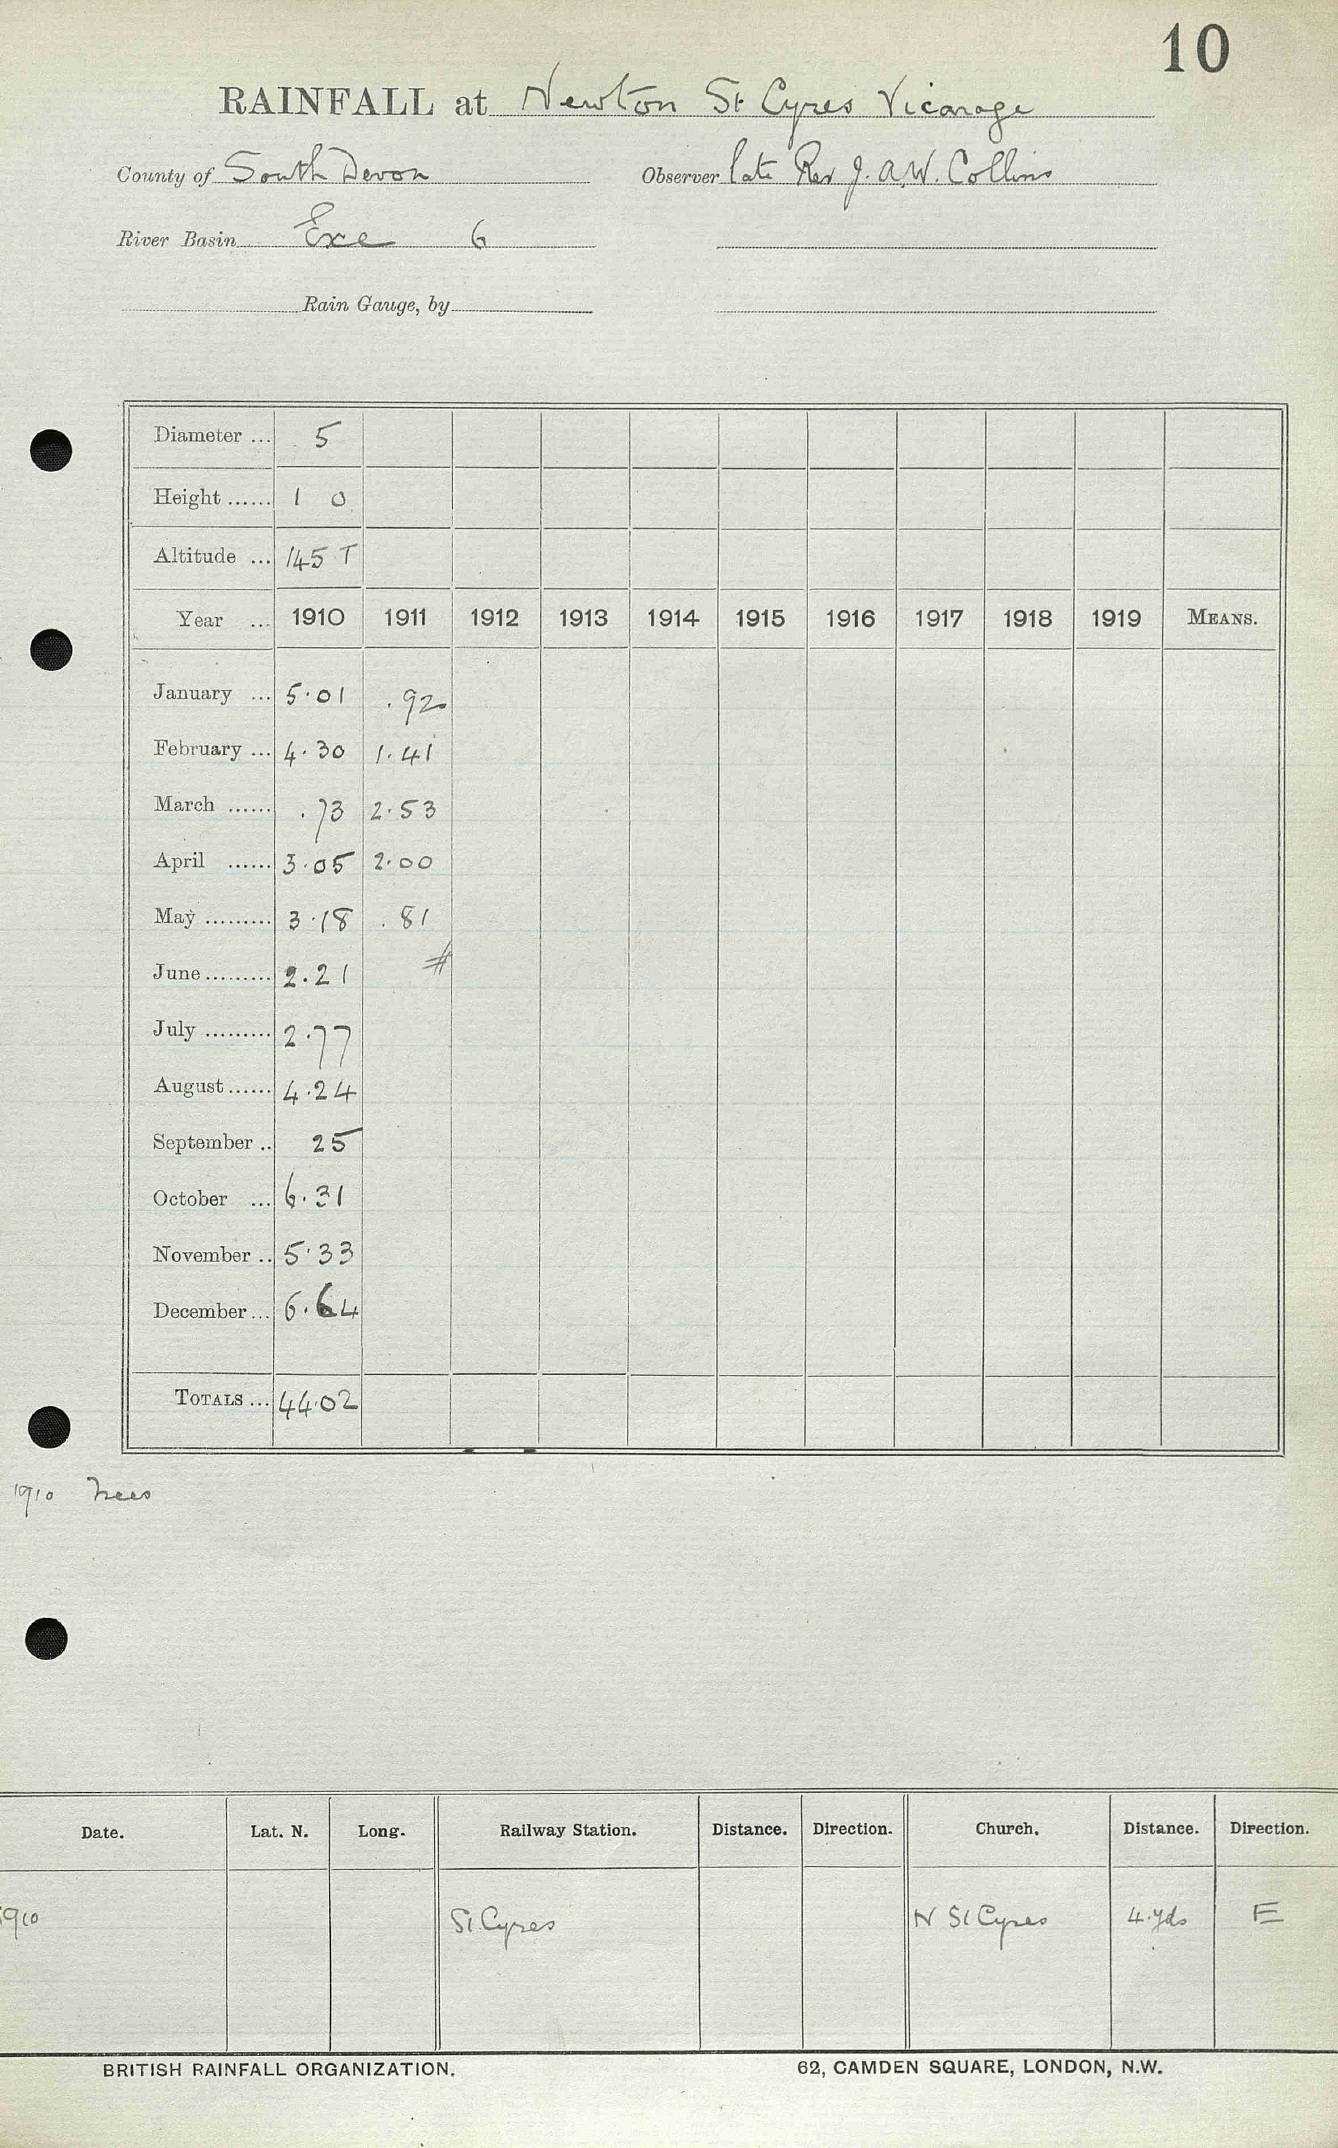 10
RAINFALL at Newton St Cyres Vicarage
County of South Devon Observer late Rev J. A. W. Collins
River Basin Exe 6
Rain Gauge, by
Diameter ... 5
Height ...... 1 0
Altitude ... 145 T
Year ... 1910 1911 1912 1913 1914 1915 1916 1917 1918 1919 MEANS.
January ... 5.01 .92
February ... 4.30 1.41
March ...... .73 2.53
April ...... 3.05 2.00
May ......... 3.18 .81
June ......... 2.21 #
July ......... 2.77
August ...... 4.24
September .. 25
October ... 6.31
November .. 5.33
December ... 6.64
TOTALS ... 44.02
1910 Trees
Date. Lat. N. Long. Railway Station. Distance. Direction. Church. Distance. Direction.
1910 St Cyres N St Cyres 4 yds E
BRITISH RAINFALL ORGANIZATION. 62, CAMDEN SQUARE, LONDON, N.W.